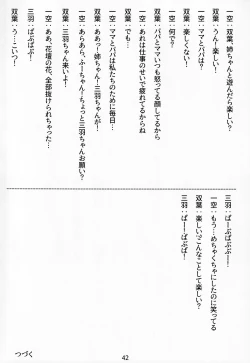 一空：双葉、姉ちゃんと遊んだら楽しい？
双葉：うん！楽しい！
一空：ママとパパは？
双葉：楽しくない！
一空：何で？
双葉：パパとママいつも怒ってる顔してるから
一空：あれは仕事のせいで疲れてるからね
双葉：でも…
一空：ママとパパは私たちのために毎日…
双葉：ああっ！姉ちゃん！三羽ちゃんが！
一空：あらあら、ふーちゃん！ちょっと三羽ちゃんお願い？
双葉：三羽ちゃん来いよ！
一空：ああ、花壇の花、全部抜けられちゃった…
三羽：ばぶばぶー！
双葉：う…こいつー！
三羽：ばーぶばぶー！
一空：もう…めちゃくちゃにしたのに笑ってる
双葉：楽しい？こんなことして楽しい？
三羽：ばーぶばぶー！
つづく
42